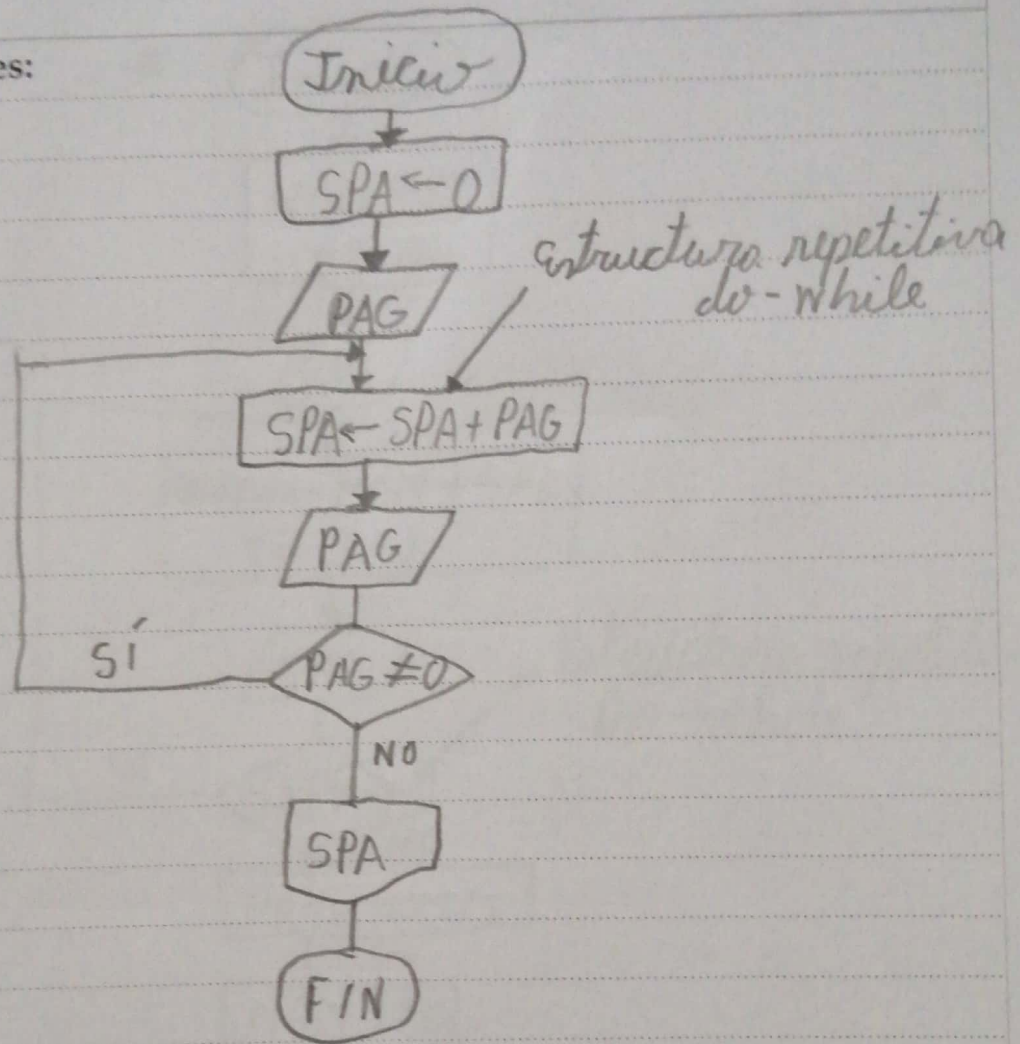 es:
Inicio
SPA ← 0
PAG
Estructura repetitiva
do-while
SPA ← SPA + PAG
PAG
PAG ≠ 0
SÍ
NO
SPA
FIN